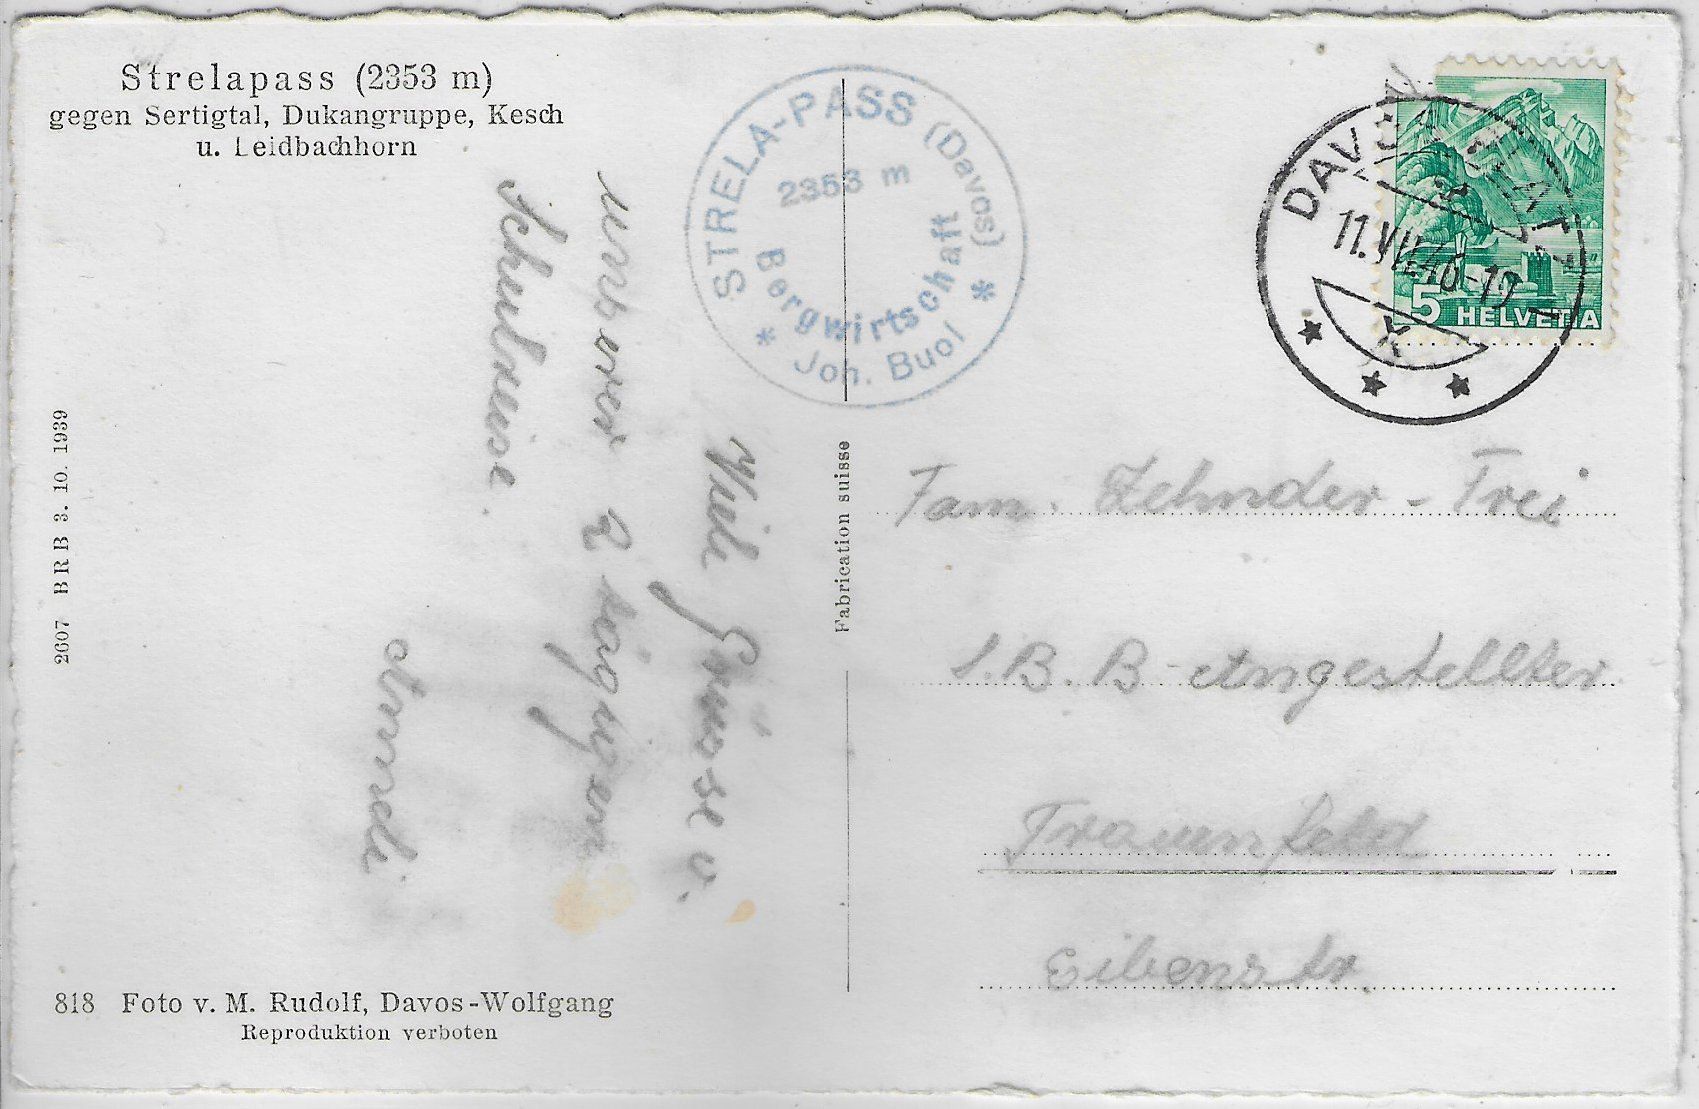 Strelapass (2353 m)
gegen Sertigtal, Dukangruppe, Kesch
u. Leidbachhorn
STRELA-PASS (Davos)
2353 m
Bergwirtschaft
* Joh. Buol *
DAVOS-PLATZ
11.VII.46-19
5 HELVETIA
Viele Grüsse v.
unserer 2 tägigen
Schulreise.
Anneli
2607 BRB 3. 10. 1939
Fabrication suisse
Fam. Zehnder-Frei
S.B.B-Angestellter
Frauenfeld
Eibenstr.
818 Foto v. M. Rudolf, Davos-Wolfgang
Reproduktion verboten